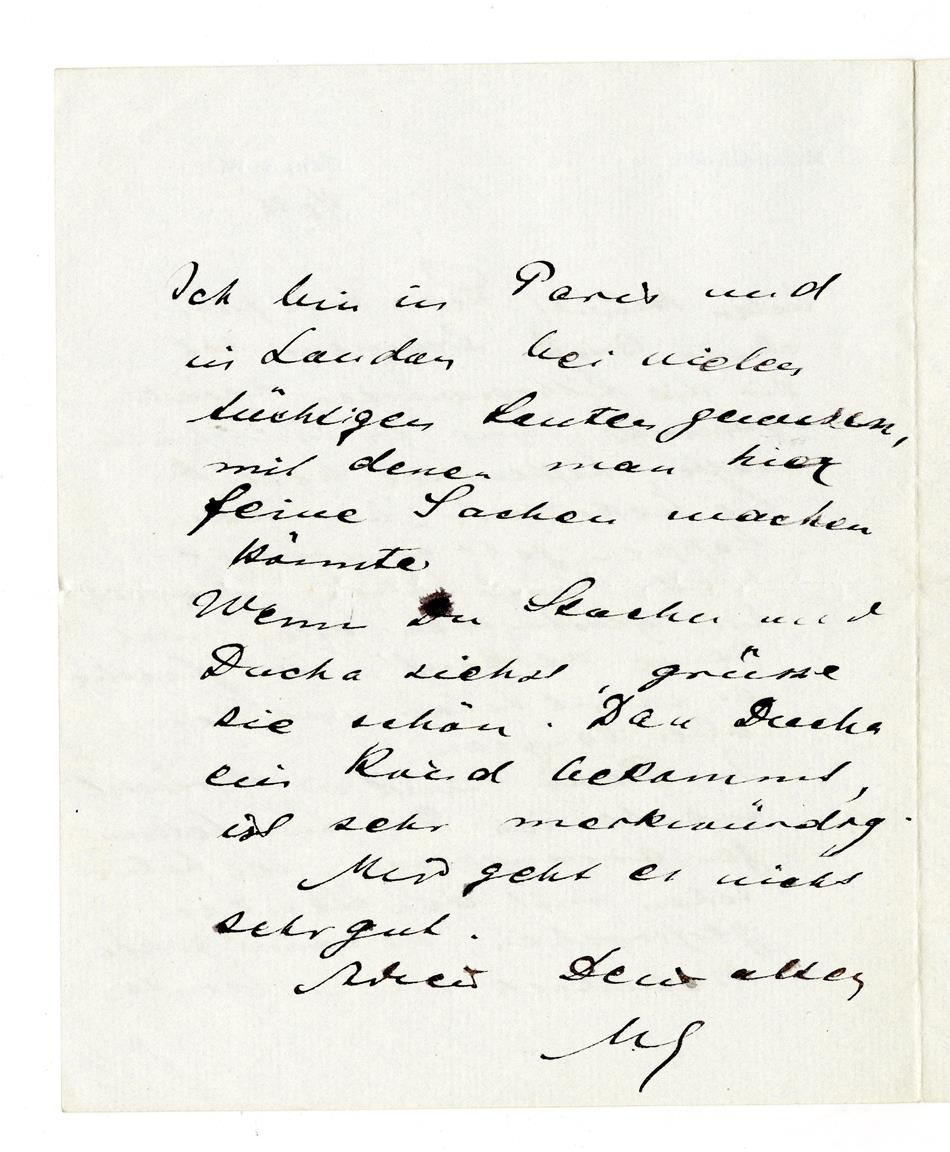 Ich bin in Paris und
in London bei vielen
tüchtigen Leuten gewesen,
mit denen man hier
feine Sachen machen
könnte
Wenn Du und
Ducha siehst, grüsse
sie schön. Das Ducha
ein Kind bekommt,
ist sehr merkwürdig.
Mir geht es nicht
sehr gut.
Adieu Dein alter
MG